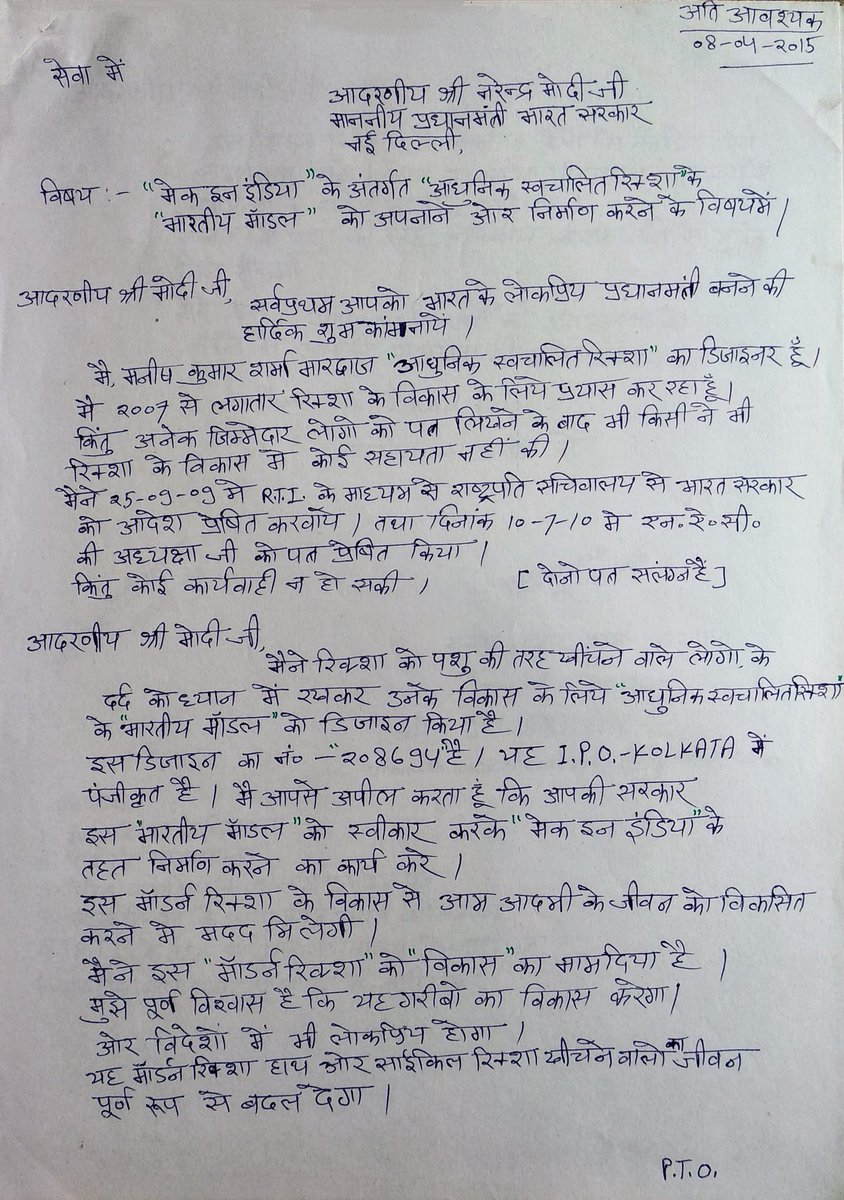 अति आवश्यक
08-04-2015
सेवा में
आदरणीय श्री नरेन्द्र मोदी जी
माननीय प्रधानमंती भारत सरकार
नई दिल्ली,
विषय :- "मेक इन इंडिया" के अंतर्गत "आधुनिक स्वचालित रिक्शा" के
"भारतीय मॅाडल" को अपनाने और निर्माण करने के विषय में |
आदरणीय श्री मोदी जी,
सर्वप्रथम आपको भारत के लोकप्रिय प्रधानमंती बनने की
हार्दिक शुभ कांमनायें |
मै, मनीष कुमार शर्मा भारद्वाज "आधुनिक स्वचालित रिक्शा" का डिजाइनर हूँ |
मै २००७ से लगातार रिक्शा के विकास के लिये प्रयास कर रहा हूँ |
किंतु अनेक जिम्मेदार लोगो को पत लिखने के बाद भी किसी ने भी
रिक्शा के विकास मे कोई सहायता नहीं की |
मैने २5-09-09 मे R.T.I. के माध्यम से राष्ट्रपति सचिवालय से भारत सरकार
को आदेश प्रेषित करवाये | तथा दिनांक 10-7-10 मे एन॰ ऐ॰ सी॰
की अध्यक्षा जी को पत प्रेषित किया |
किंतु कोई कार्यवाही न हो सकी | [ दोनो पत संलग्न हैं ]
आदरणीय श्री मोदी जी,
मैने रिक्शा को पशु की तरह खींचने वाले लोगो के
दर्द को ध्यान में रखकर उनके विकास के लिये "आधुनिक स्वचालित रिक्शा"
के "भारतीय मॅाडल" को डिजाइन किया है |
इस डिजाइन का नं० - "२०8694" है | यह I.P.O.-KOLKATA में
पंजीकृत है | मै आपसे अपील करता हूं कि आपकी सरकार
इस "भारतीय मॅाडल" को स्वीकार करके "मेक इन इंडिया" के
तहत निर्माण करने का कार्य करे |
इस मॅाडर्न रिक्शा के विकास से आम आदमी के जीवन को विकसित
करने मे मदद मिलेगी |
मैने इस "मॅाडर्न रिक्शा" को "विकास" का नाम दिया है |
मुझे पूर्ण विश्वास है कि यह गरीबो का विकास करेगा |
और विदेशों में भी लोकप्रिय होगा |
यह मॅाडर्न रिक्शा हाथ और साईकिल रिक्शा खींचने वालो का जीवन
पूर्ण रूप से बदल देगा |
P.T.O.